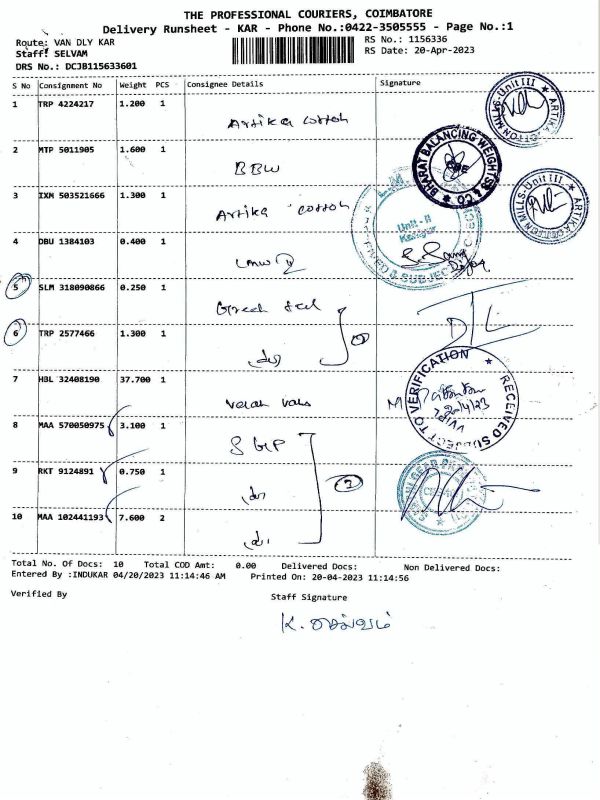 THE PROFESSIONAL COURIERS, COIMBATORE
Delivery Runsheet - KAR - Phone No.:0422-3505555 - Page No.:1
Route: VAN DLY KAR
Staff: SELVAM
DRS No.: DCJB115633601
RS No.: 1156336
RS Date: 20-Apr-2023
S No Consignment No Weight PCS Consignee Details Signature
1 TRP 4224217 1.200 1 Artika cotton
ARTIKA COTTON MILLS-Unit III
2 MTP 5011905 1.600 1 BBW
BHARAT BALANCING WEIGHTSS & CO.
3 IXM 503521666 1.300 1 Artika cotton
ARTIKA COTTON MILLS-Unit III
4 DBU 1384103 0.400 1 LMW
Unit - II
5 SLM 318090866 0.250 1
6 TRP 2577466 1.300 1
7 HBL 32408190 37.700 1
RECEIVED SUBJECT TO VERIFICATION
8 MAA 570050975 3.100 1
9 RKT 9124891 0.750 1
10 MAA 102441193 7.600 2
Total No. Of Docs: 10 Total COD Amt: 0.00 Delivered Docs: Non Delivered Docs:
Entered By :INDUKAR 04/20/2023 11:14:46 AM Printed On: 20-04-2023 11:14:56
Verified By
Staff Signature